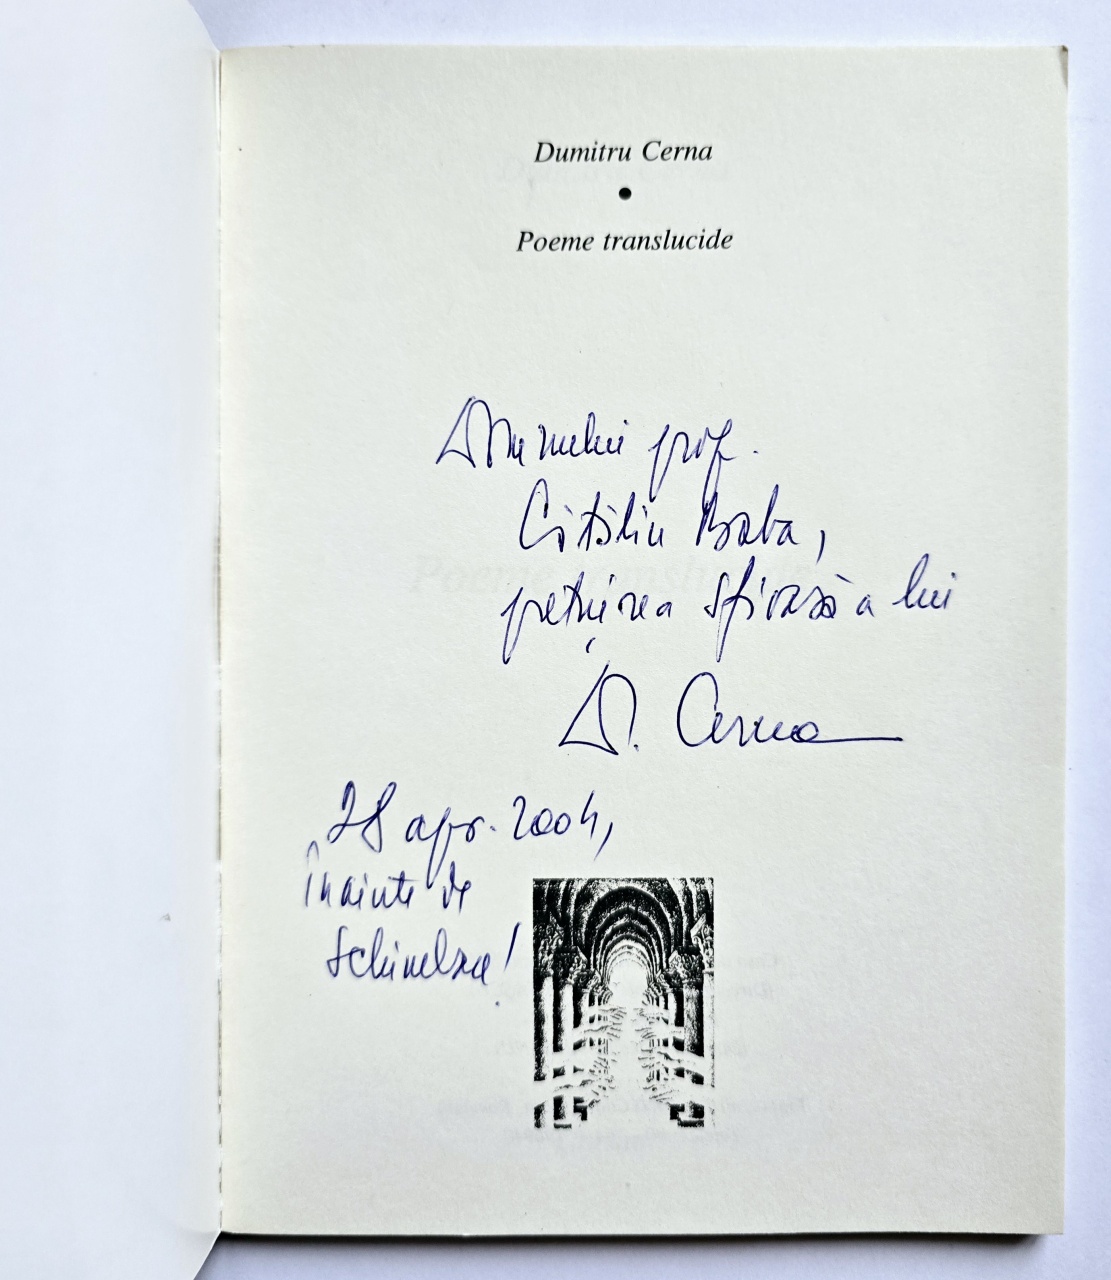 Dumitru Cerna
•
Poeme translucide
Domnului prof.
Cătălin Baba,
prețuirea sfioasă a lui
D. Cerna
28 apr. 2004,
înainte de
schimbare!